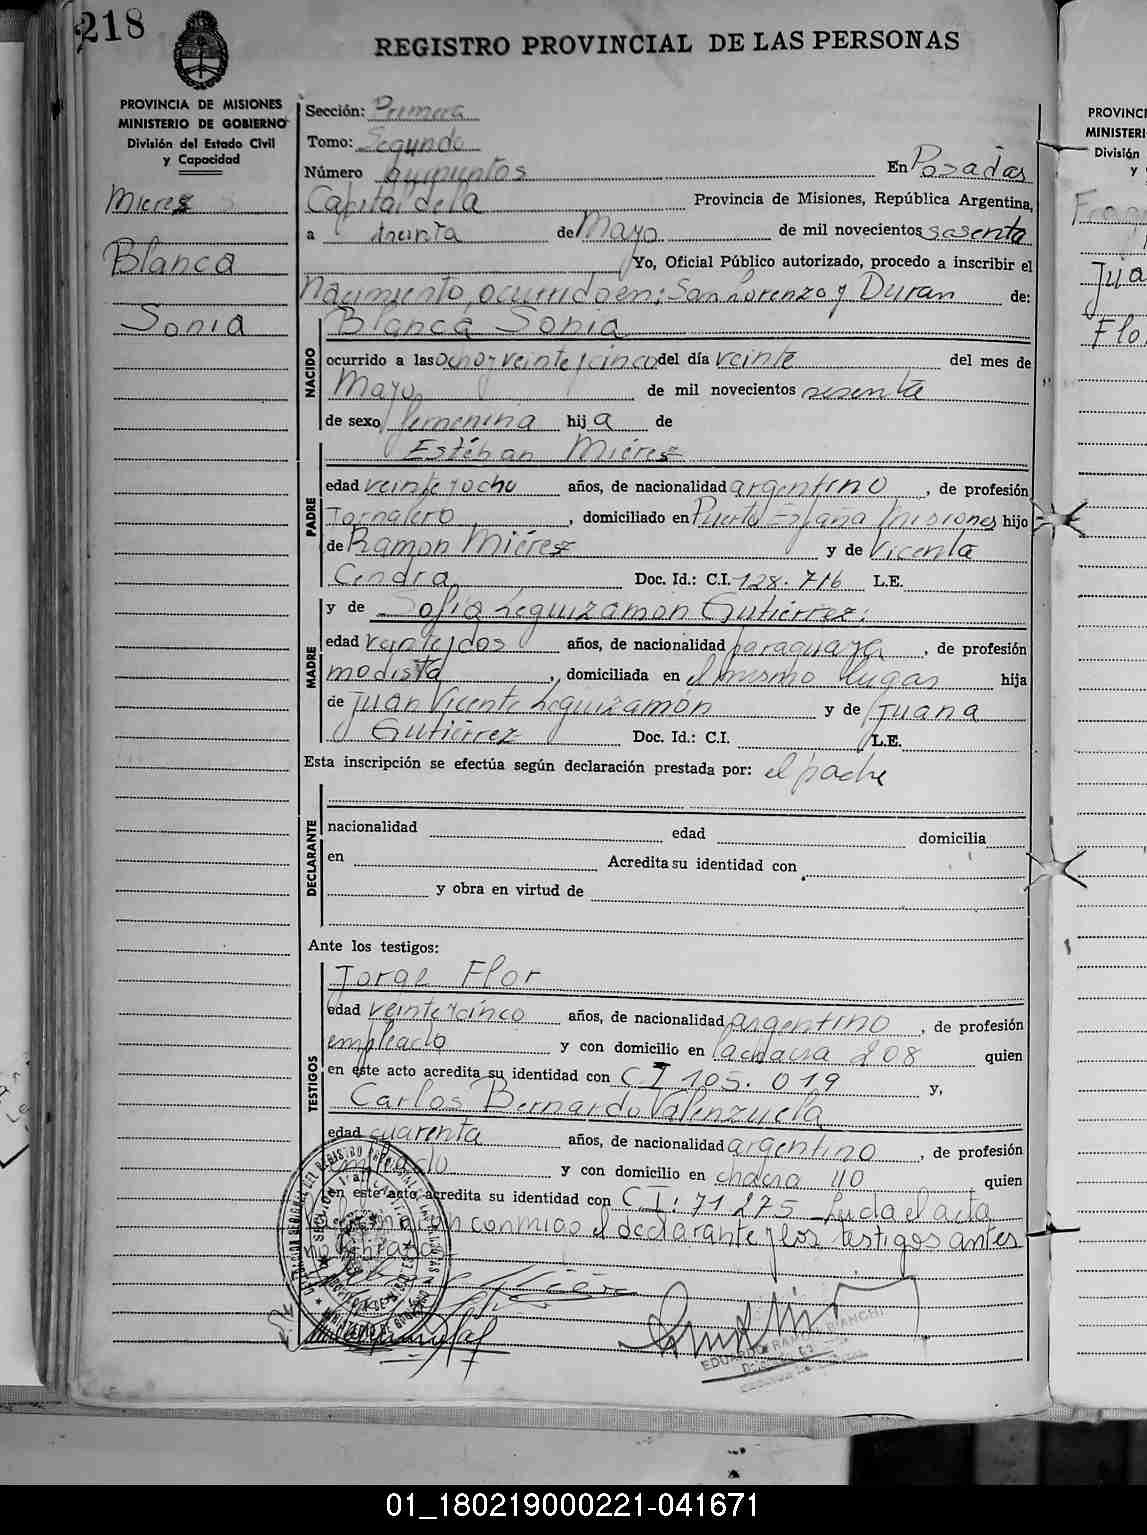 218
REGISTRO PROVINCIAL DE LAS PERSONAS
PROVINCIA DE MISIONES
MINISTERIO DE GOBIERNO
División del Estado Civil
y Capacidad
Mieres
Blanca
Sonia
Sección: Primera
Tomo: Segundo
Número quinientos En Posadas
Capital de la Provincia de Misiones, República Argentina,
a treinta de Mayo de mil novecientos sesenta
Yo, Oficial Público autorizado, procedo a inscribir el
Nacimiento, ocurrido en: San Lorenzo y Duran de:
NACIDO
Blanca Sonia
ocurrido a las ocho y veinte y cinco del día veinte del mes de
Mayo de mil novecientos sesenta
de sexo femenina hija de
Estéban Miéres
PADRE
edad veinte y ocho años, de nacionalidad argentino, de profesión
Jornalero, domiciliado en Puerto España Misiones hijo
de Ramon Miéres y de Vicenta
Cendra Doc. Id.: C.I. 128.716 L.E.
y de Sofia Leguizamon Gutiérrez;
MADRE
edad veinte y dos años, de nacionalidad paraguaya, de profesión
modista, domiciliada en el mismo lugar hija
de Juan Vicente Leguizamon y de Juana
Gutiérrez Doc. Id.: C.I. L.E.
Esta inscripción se efectúa según declaración prestada por: el padre
DECLARANTE
nacionalidad edad domicilia
en Acredita su identidad con
y obra en virtud de
Ante los testigos:
TESTIGOS
Jorge Flor
edad veinte y cinco años, de nacionalidad argentino, de profesión
empleado y con domicilio en la chacra 208 quien
en este acto acredita su identidad con C I 105.019 y,
Carlos Bernardo Valenzuela
edad cuarenta años, de nacionalidad argentino, de profesión
empleado y con domicilio en chacra 110 quien
en este acto acredita su identidad con C I: 71275 Leida el acta
conmigo el declarante y los testigos antes
EDUARDO RAMON BIANCHI
PROVINC
MINISTERI
División
y
Jua
Flo
01_180219000221-041671